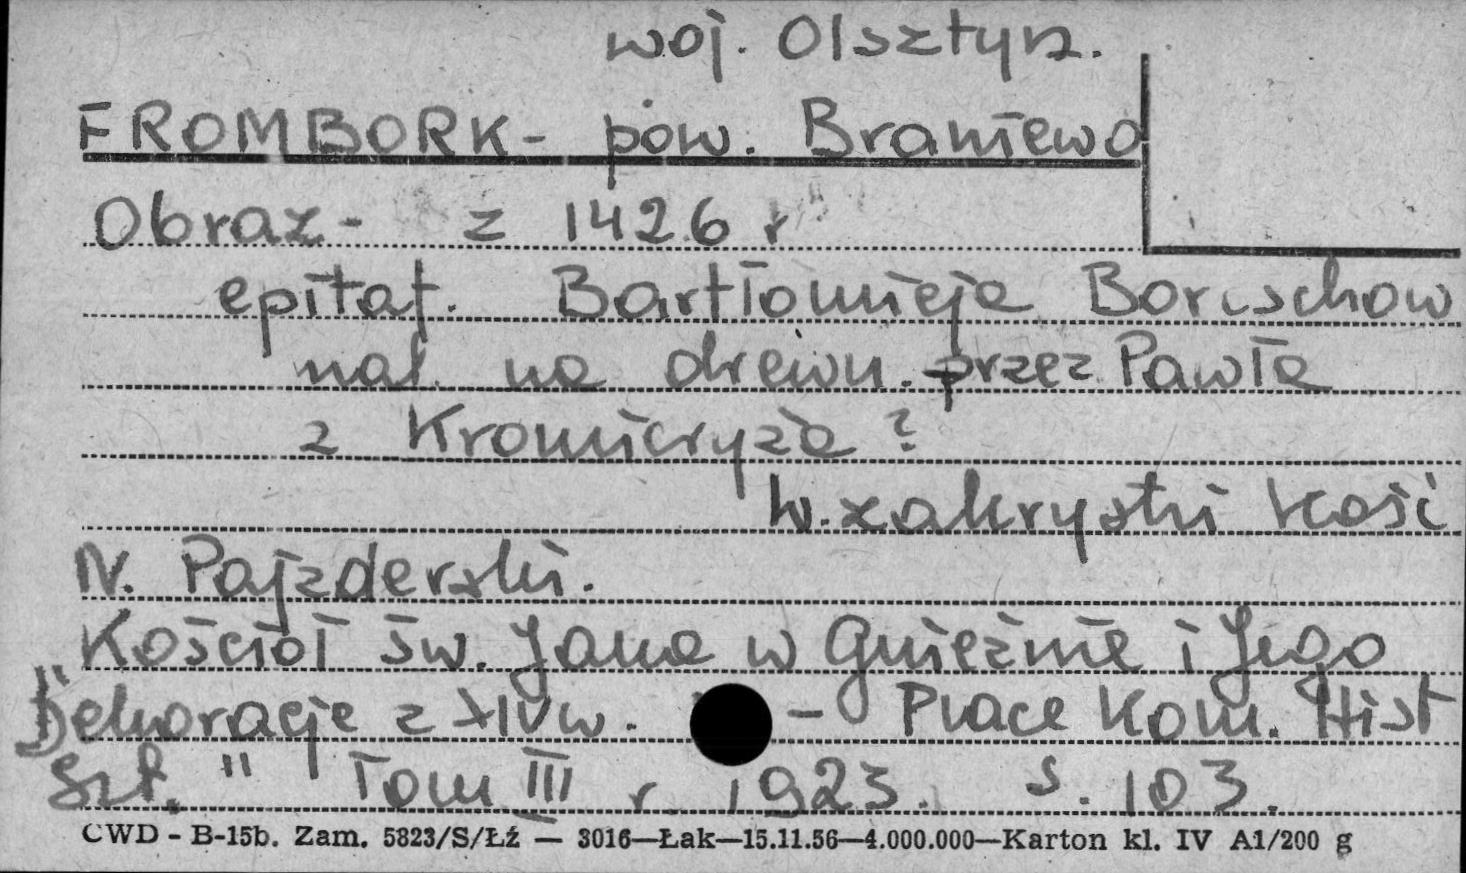 woj. Olsztyn.
FROMBORK - pow. Braniewo
Obraz - z 1426 r
epitaf. Bartłomieja Boreschow
mal. na drewn. przez Pawła
z Kromieryża ?
w. zakrystii kość
N. Pajzderski.
Kościół św. Jana w Gnieźnie i Jego
Dekoracje z XIV w. - " Prace Kom. Hist
Szt. " Tom III r. 1923. s. 103.
CWD - B-15b. Zam. 5823/S/Łź — 3016—Łak—15.11.56—4.000.000—Karton kl. IV A1/200 g